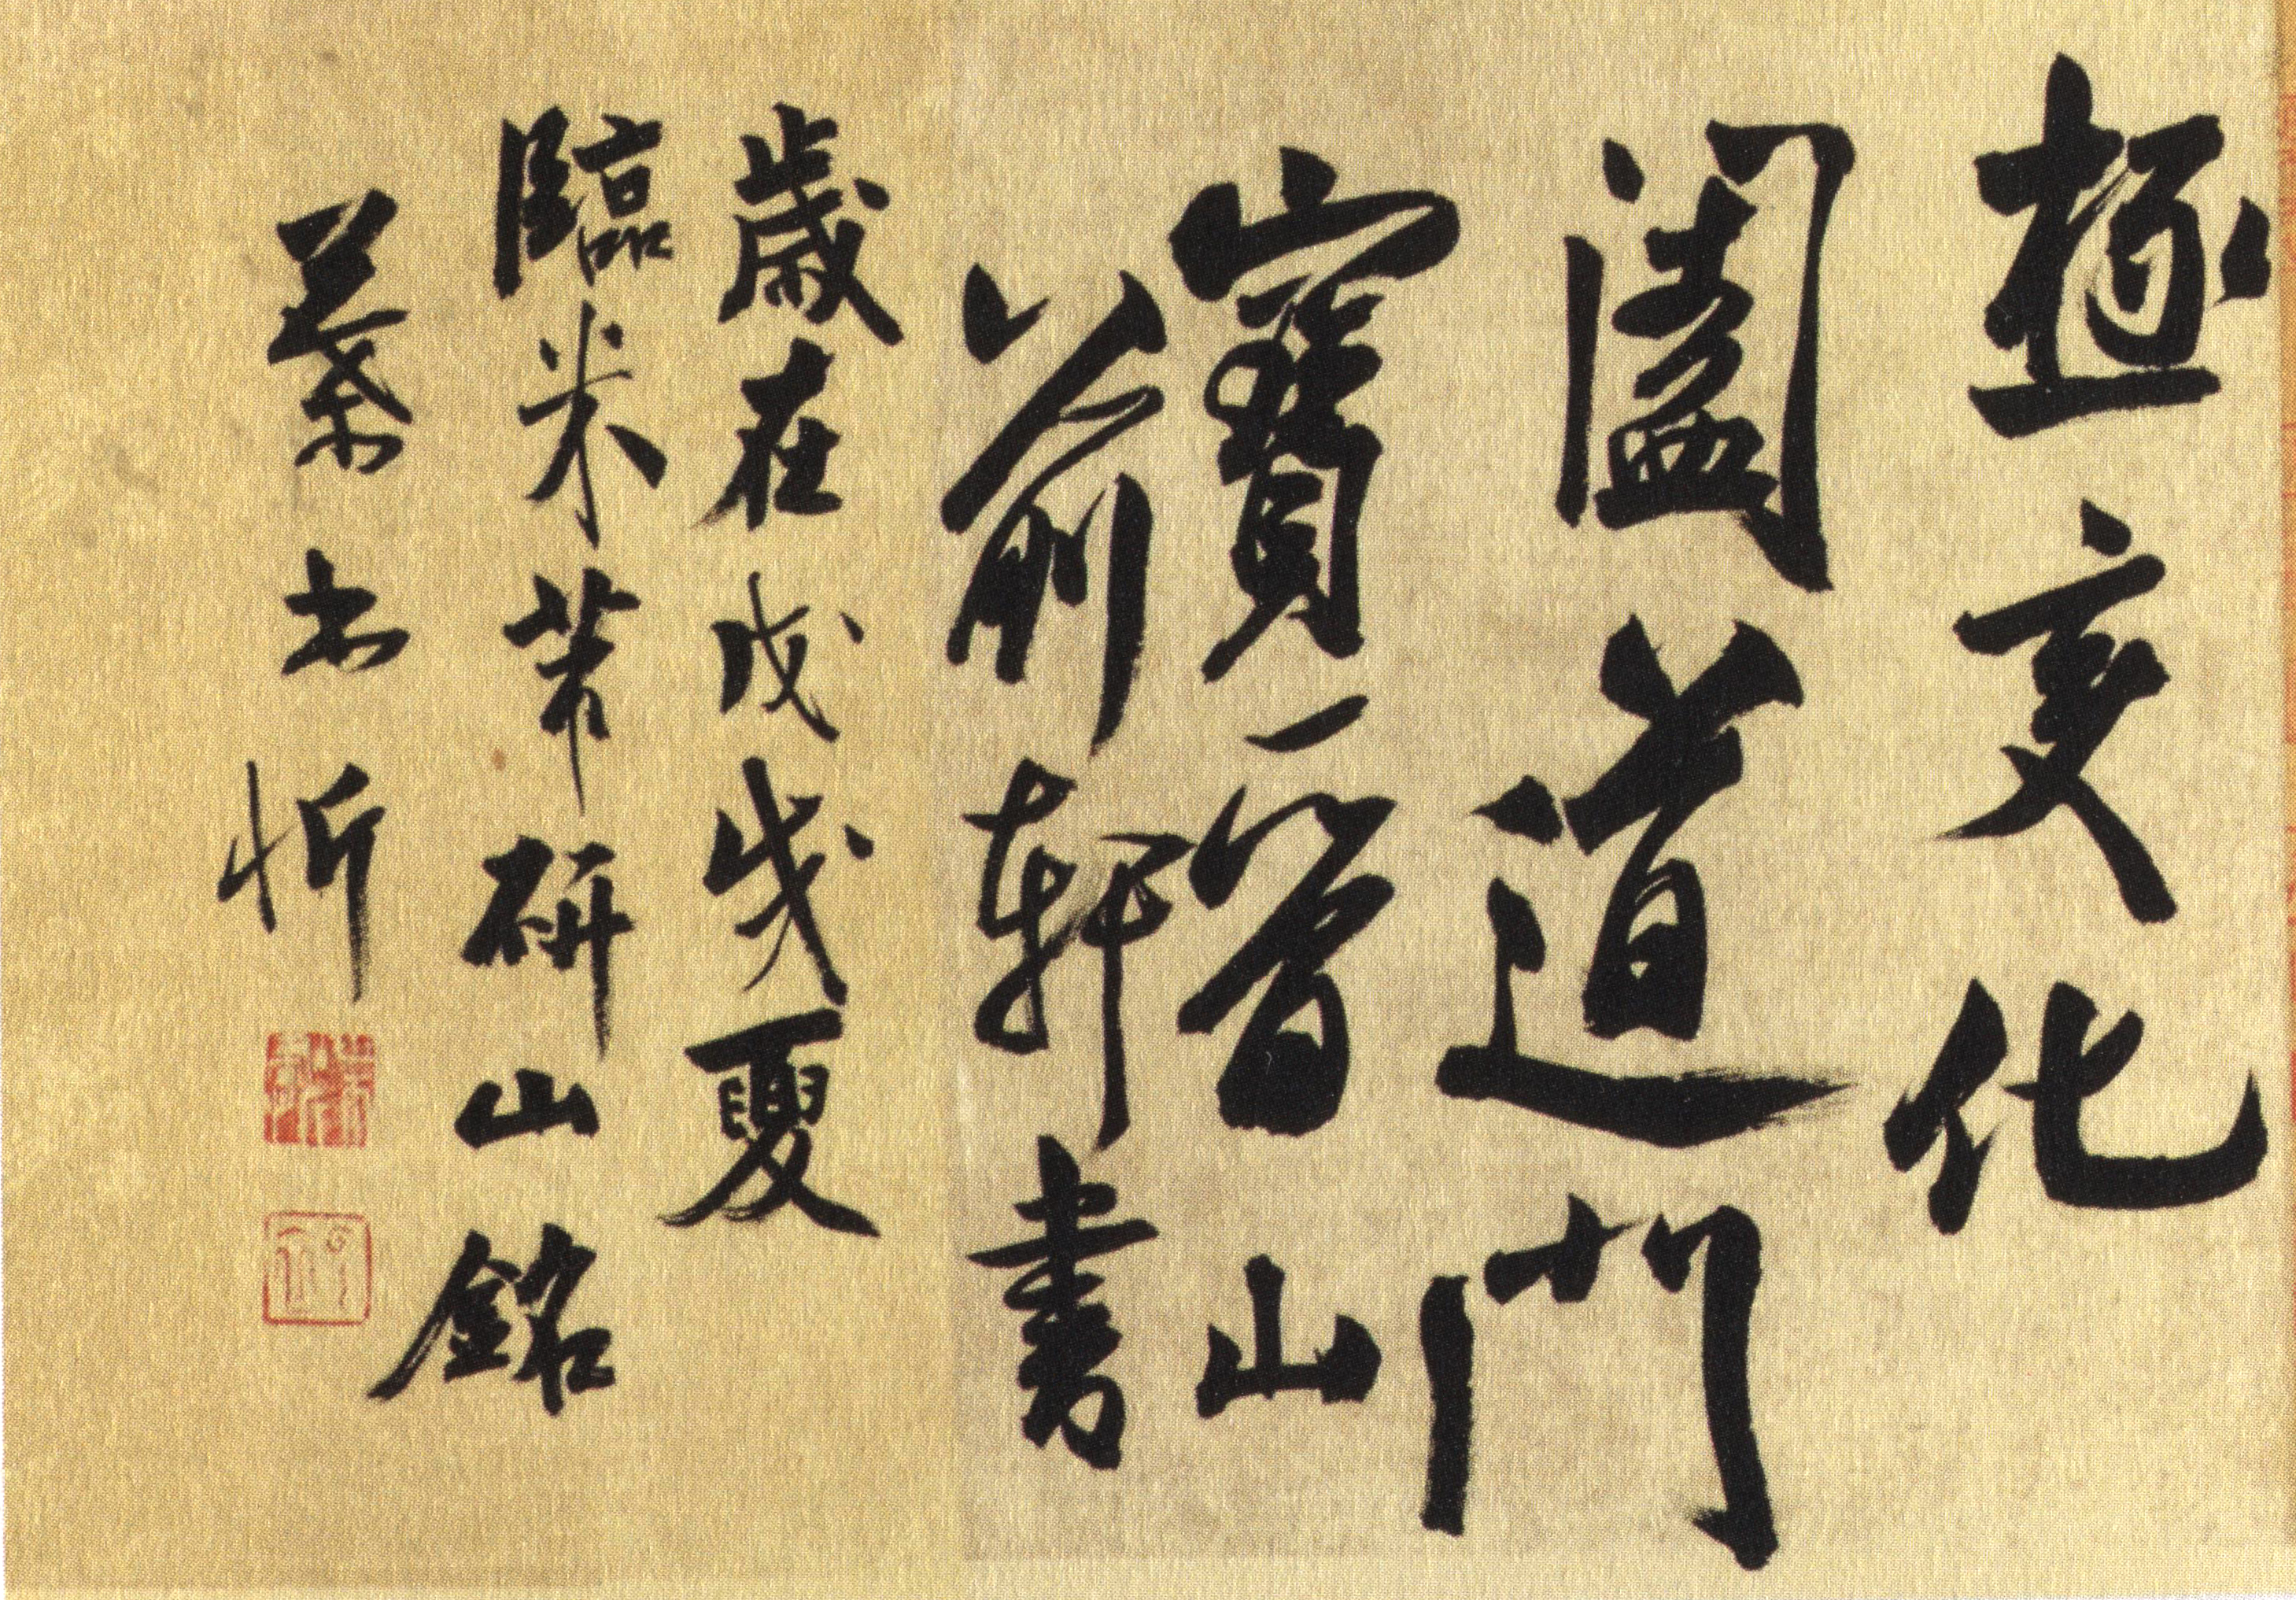 極变化
闔道門
寶晉山
前軒書
歲在戊戌夏
臨米芾研山銘
忻